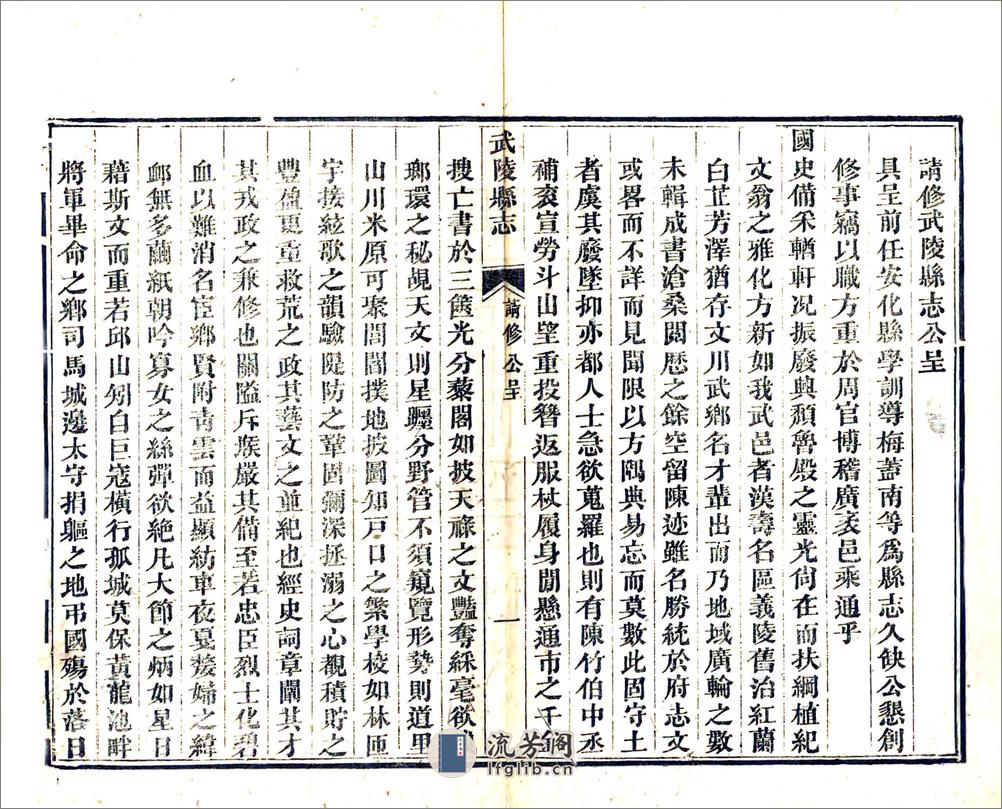 請修武陵縣志公呈
具呈前任安化縣學訓導梅蓋南等爲縣志久缺公懇創
修事竊以職方重於周官博稽廣袤邑乘通乎
國史備釆輶軒况振廢興頽魯殿之靈光尙在而扶綱植紀
文翁之雅化方新如我武邑者漢壽名區義陵舊治紅蘭
白芷芳澤猶存文川武鄉名才輩出而乃地域廣輪之數
未輯成書滄桑閱歷之餘空留陳迹雖名勝統於府志文
或畧而不詳而見聞限以方隅典易忘而莫數此固守土
者虞其廢墜抑亦都人士急欲蒐羅也則有陳竹伯中丞
補衮宣勞斗山望重投簪返服杖履身閒懸通市之千金
武陵縣志
請修 公呈
一
搜亡書於三篋光分藜閣如披天祿之文豔奪綵毫欲
瑯環之秘覘天文則星躔分野管不須窺覽形勢則道里
山川米原可聚閭閻撲地披圖知戸口之繁學校如林匝
宇接絃歌之韻驗隄防之鞏固彌深拯溺之心觀積貯之
豐盈更重救荒之政其藝文之並紀也經史詞章闡其才
其戎政之兼修也關隘斥堠嚴其備至若忠臣烈士化碧
血以難消名宦鄉賢附靑雲而益顯紡車夜戛嫠婦之緯
衈無多繭紙朝吟寡女之絲彈欲絶凡大節之炳如星日
藉斯文而重若邱山矧白巨寇橫行孤城莫保黃龍池畔
將軍畢命之鄉司馬城邊太守捐軀之地弔國殤於落日
流芳阁
lfglib.cn